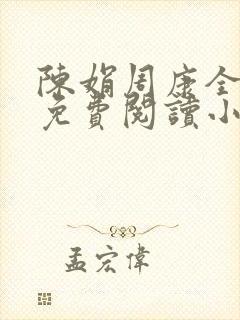 陳娟周康全
免費閱讀小
孟宏偉